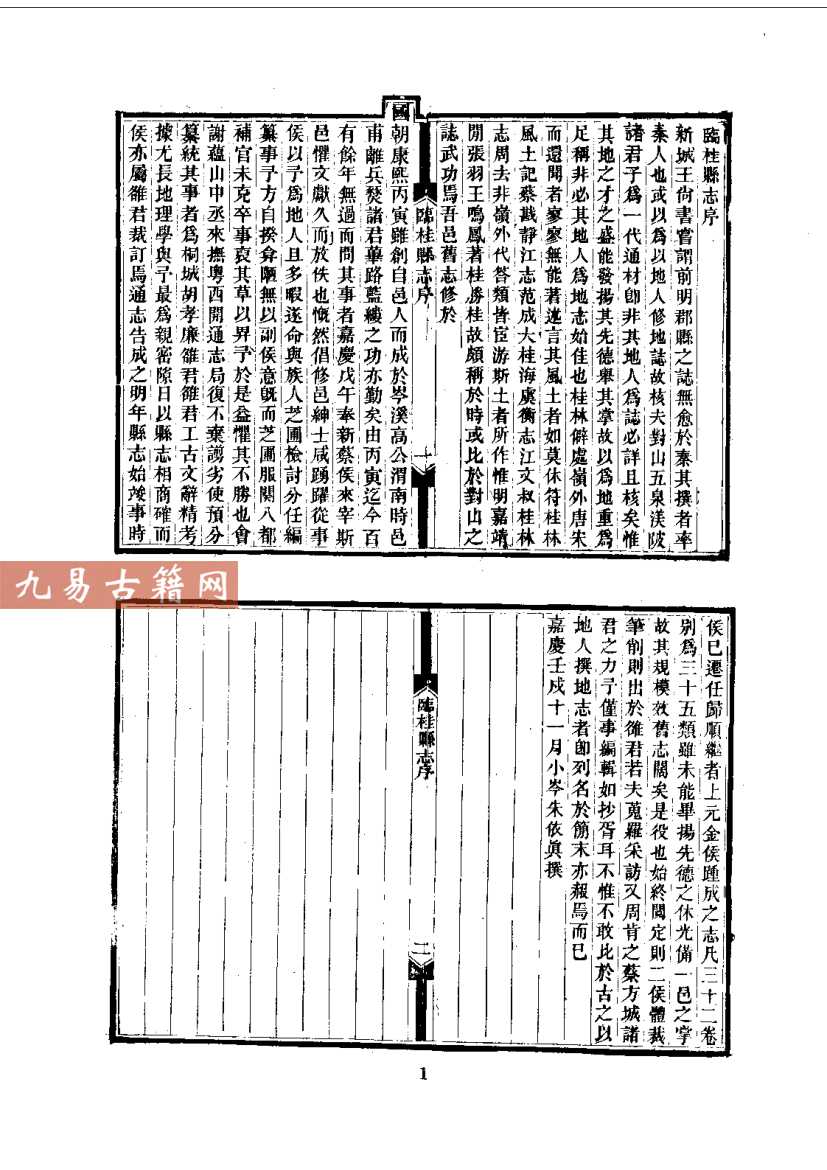 臨桂縣志序
新城王尙書嘗謂前明郡縣之誌無愈於秦其撰者率
秦人也或以爲以地人修地誌故核夫對山五泉渼陂
諸君子爲一代通材卽非其地人爲誌必詳且核矣惟
其地之才之盛能發揚其先德舉其掌故以爲地重爲
足稱非必其地人爲地志始佳也桂林僻處嶺外唐宋
而還聞者寥寥無能著述言其風土者如莫休符桂林
風土記蔡戡靜江志范成大桂海虞衡志江文叔桂林
志周去非嶺外代答類皆宦游斯土者所作惟明嘉靖
閒張羽王鳴鳳著桂勝桂故頗稱於時或比於對山之
誌武功焉吾邑舊志修於
臨桂縣志序
一
國朝康熙丙寅雖創自邑人而成於岑溪高公渭南時邑
甫離兵燹諸君蓽路藍縷之功亦勤矣由丙寅迄今百
有餘年無過而問其事者嘉慶戊午奉新蔡侯來宰斯
邑懼文獻久而放佚也慨然倡修邑紳士咸踴躍從事
侯以予爲地人且多暇遂命與族人芝圃檢討分任編
纂事予方自揆弇陋無以副侯意旣而芝圃服闋入都
補官未克卒事裒其草以畀予於是益懼其不勝也會
謝蘊山中丞來撫粵西開通志局復不棄譾劣使預分
纂統其事者爲桐城胡孝廉雒君雒君工古文辭精考
據尤長地理學與予最爲親密隙日以縣志相商確而
侯亦屬雒君裁訂焉通志告成之明年縣志始竣事時
九易古籍网
侯已遷任歸順繼者上元金侯踵成之志凡三十二卷
別爲三十五類雖未能畢揚先德之休光備一邑之掌
故其規模效舊志闊矣是役也始終閱定則二侯體裁
筆削則出於雒君若夫蒐羅采訪又周肯之蔡方城諸
君之力予僅事編輯如抄胥耳不惟不敢比於古之以
地人撰地志者卽列名於簡末亦赧焉而已
嘉慶壬戌十一月小岑朱依眞撰
臨桂縣志序
二
1